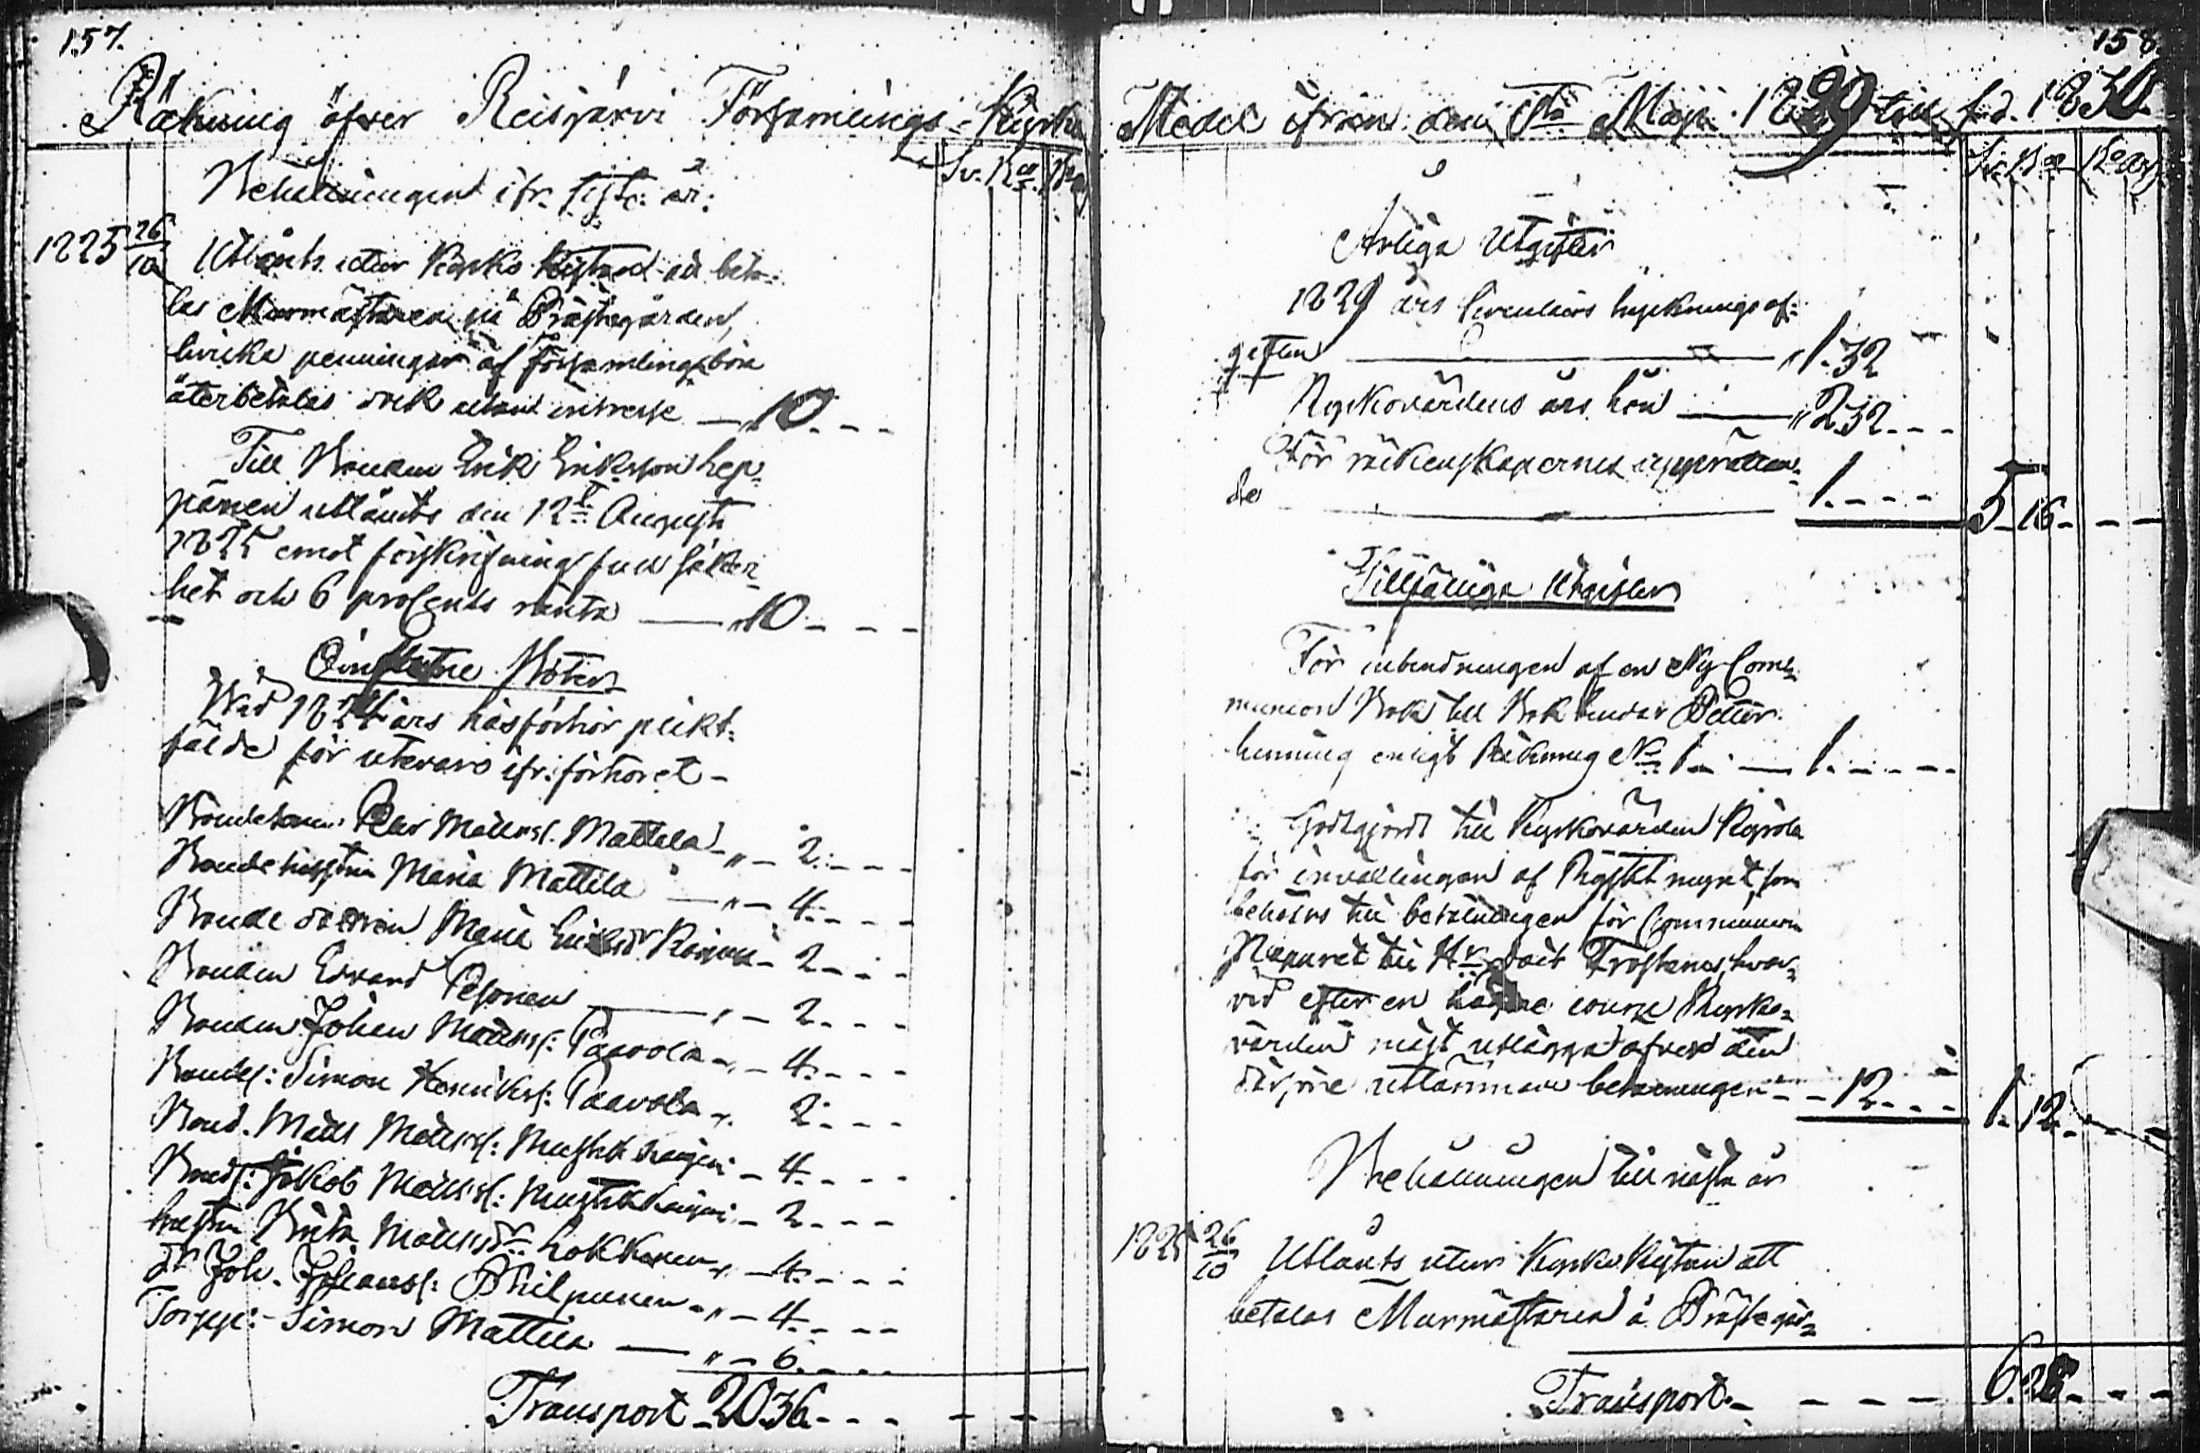 157.
Räkning öfver Reisjärvi Församlings-Kyrko
Sv. R.
Behållningen ifr. sist: år:
1825 26/10 Utlånts utur Kyrko Kistan att beta-
las Murmästaren på Prästegården,
hvilka penningar af Församlingsbon
återbetalas dock utan intresse — 10. - - -
Till Bonden Erik Eriksson Lep-
pänen utlånts den 12te Augusti
1825 emot förskrifning sub säker-
het och 6 proCents ränta — 10 - - -
Oinflutne Böter
Wid 1824 års läsförhör plikt-
fälde för utevaro ifr: förhöret -
Bonde Pehr Mattss. Mattila - " - 2. - - -
Bonde hustrun Maria Mattila - " - 4. - - -
Bonde dottren Maria Eriksdr - 2 - - -
Bonden Edvard Pesonen — " - 2. - - -
Bonden Johan Mattss: Paavola - " - 4. - - -
Bondes: Simon Henrikss: Paavola - " 2. - - -
Bond. Matts Mattss: - 4. - - -
Bondes: Jakob Mattss: - 2 - - -
hustru Brita Mattsdr Lokkanen " - 4. - - -
dr Joh. Johanss: Philpunen - " - 4. - - -
Torpp: Simon Mattila — " - 6. - - -
Transport - 20 36. - - - - -
158.
Medel ifrån den 1sta Maji 1829 till s.d. 1830.
Årliga Utgifter
1829 års Circulairs tryknings af-
giften — " 1. 32
Kyrkovärdens års lön — " 2 32 - - -
För räkenskapernes upprättan-
de — 1. - - - 5 - 16 - - -
Tillfällige Utgifter
För inbindningen af en Ny Com-
munion Bok till Bokbindar Petter
henning enligt Räkning No 1 - — 1. - - - -
Godtgjort till Kyrkovärden
för invexlingen af Ryskt mynt som
behöfvs till betalningen för Communion
till Hr hvar-
vid efter en högre cours Kyrko-
värden måst utlägga öfver den
utlämnan betalningen - - 12. - - - 1. 12. - - -
Behållningen till nästa år
1825 26/10 Utlånts utur Kyrko Kistan att
betalas Murmästaren å Prästegår-
Transport. - - - - 6. 28. - - -